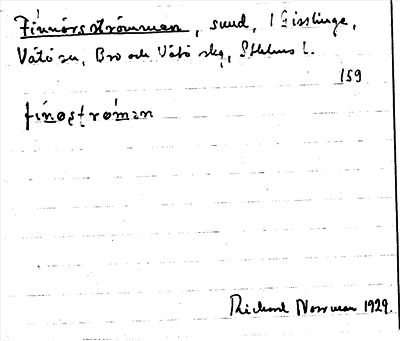 Finnörsströmmen, sund, 1 Gisslinge,
Vätö sn, Bro och Vätö skg, Sthlms l.
159
finøʂtrømən
Richard Norrman 1929.